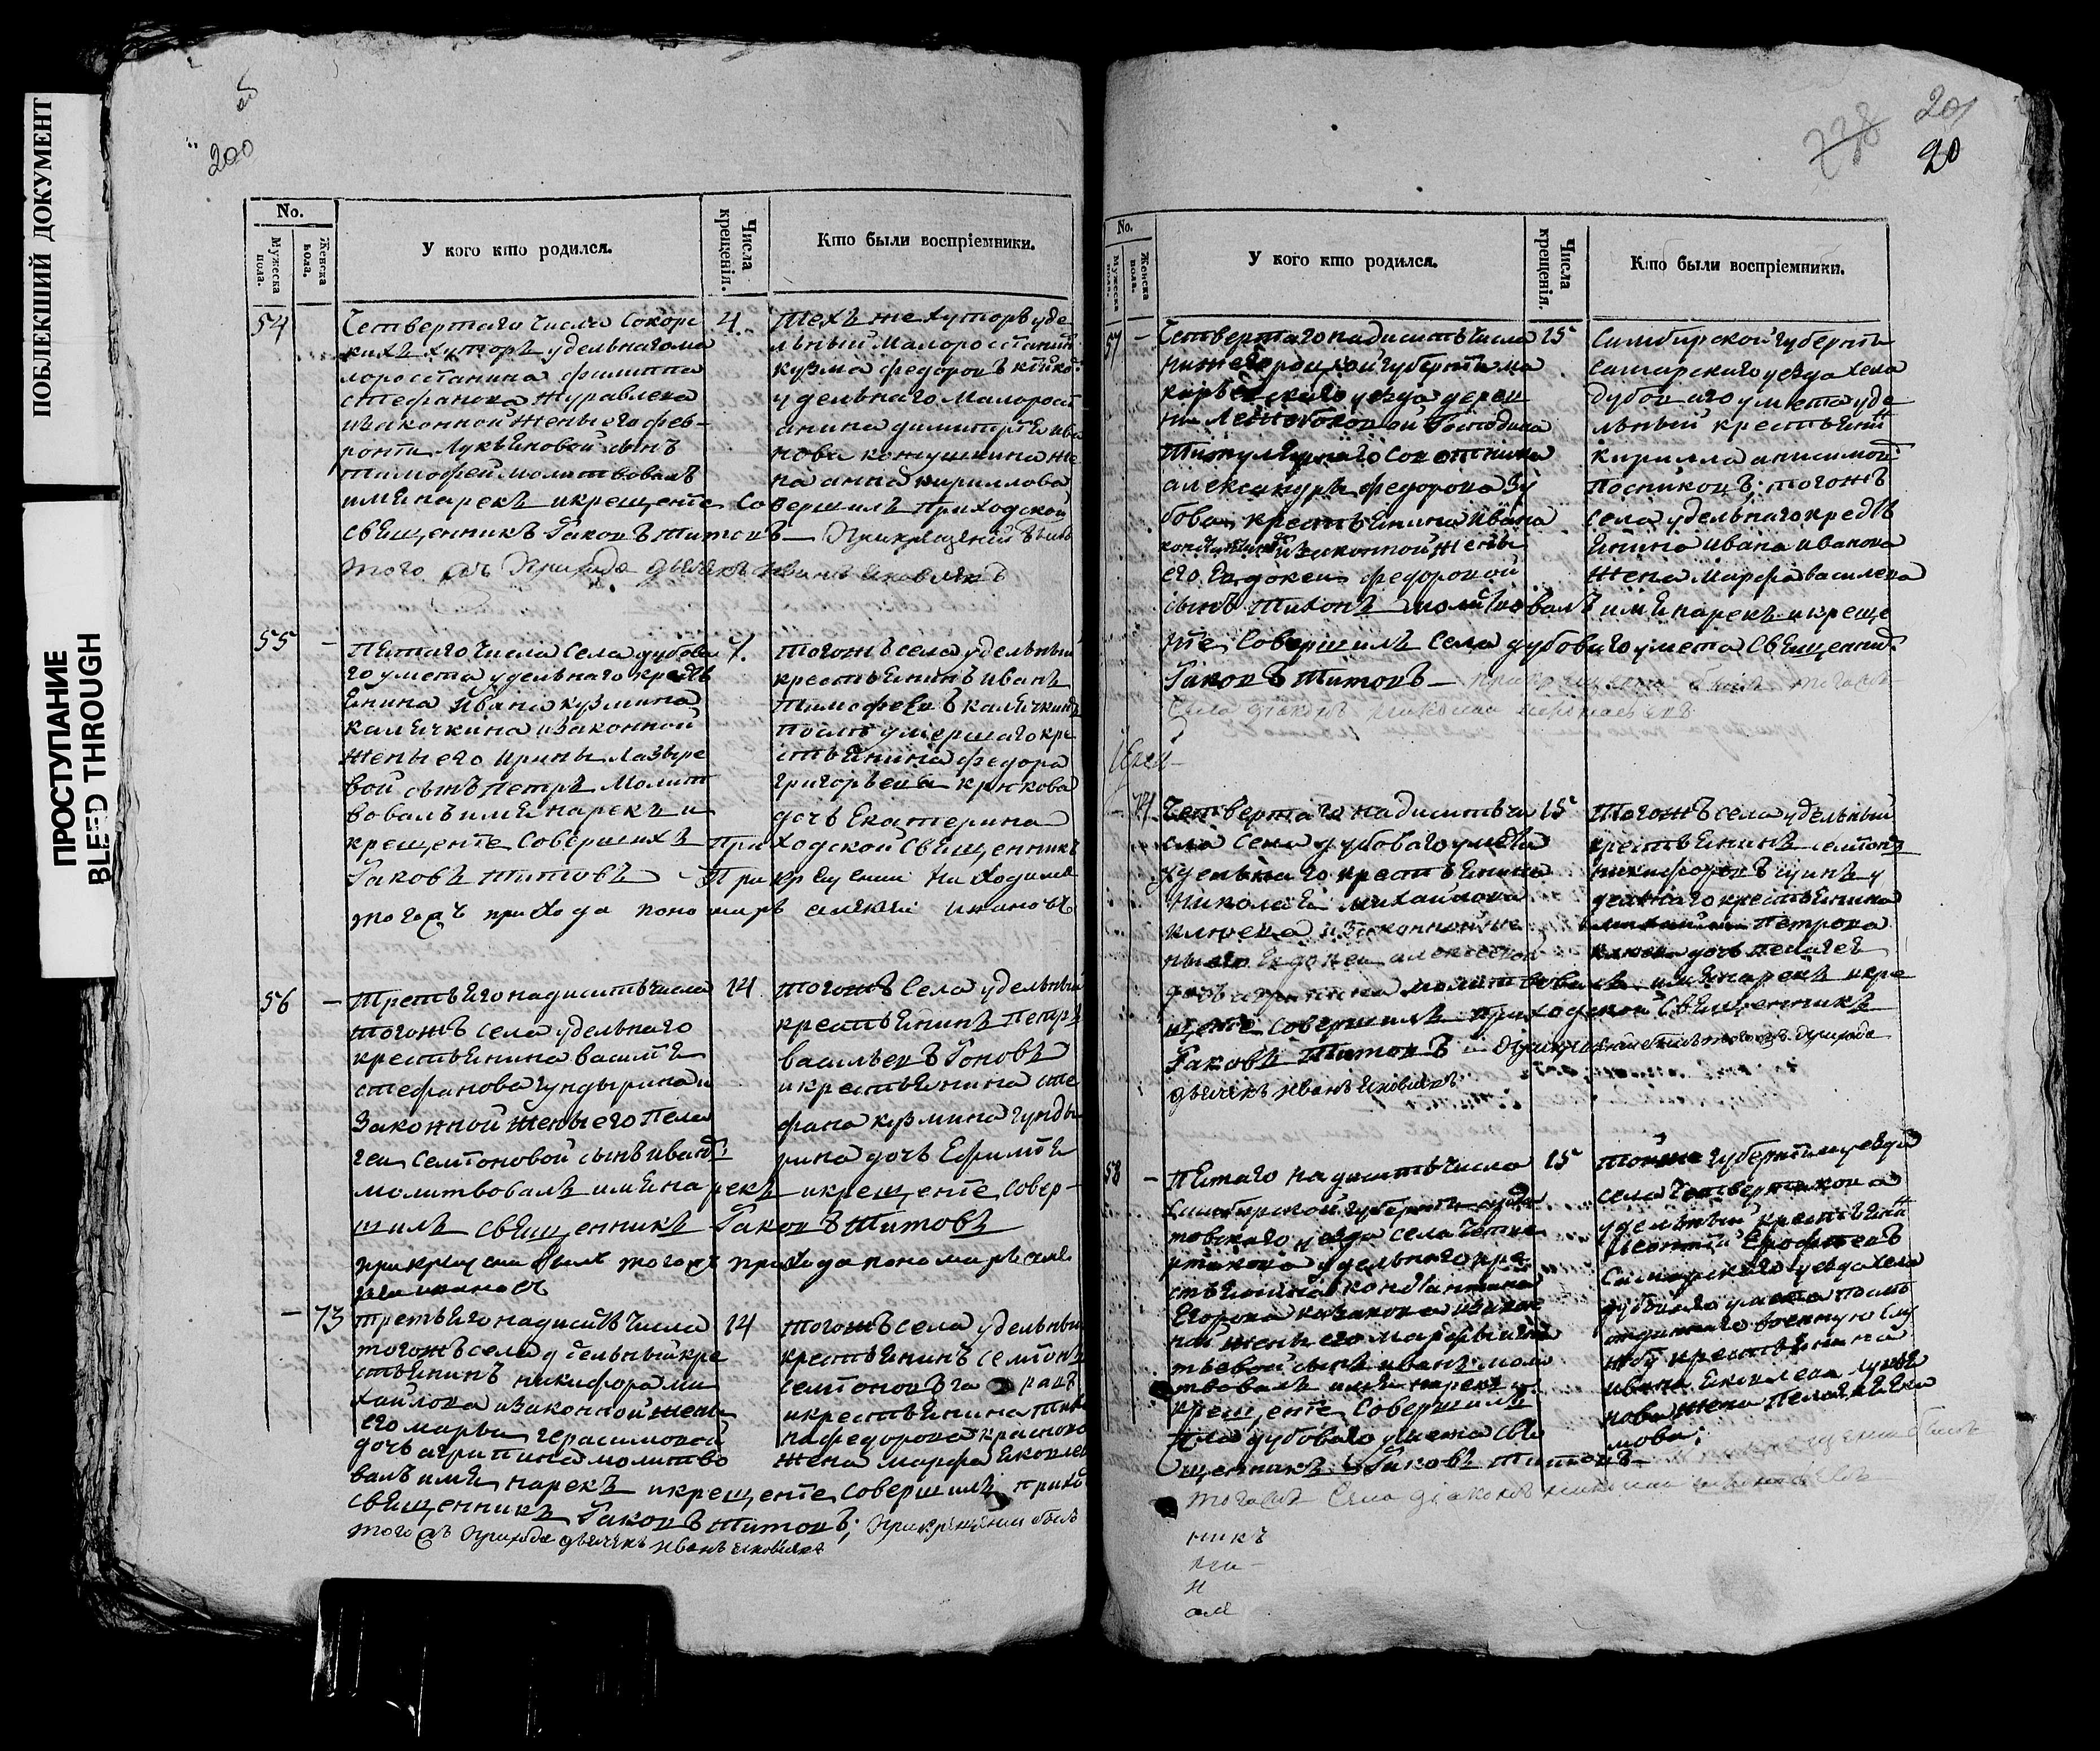 ПОБЛЕКШИЙ ДОКУМЕНТ
ПРОСТУПАНИЕ
BLEED THROUGH
200
No.
Мужеска пола.
Женска пола.
У кого кто родился.
Числа крещенія.
Кто были воспріемники.
54
Четвертаго числа Сокорс
кихъ хуторъ удельнаго ма
лоросіянина филиппа
стефанова журавлева
изаконной жены его фев-
ронiи Лукьяновой сынъ
тимофей молитвовалъ
имя нарекъ икрещенiе совершилъ приходской
священникъ Iаковъ Титовъ —
тогожъ прихода дьячекъ иванъ яковлевъ
4.
Техъ же хуторъ уде
льный малоросіянин
кузма федоровъ
удельнаго малорос
анина димитрiя ива
нова жена
анна кириллова
55 —
Пятаго числа Села дубова
го умета удельнаго крестьян
янина Ивана кузмина
калячкина изаконной
жены его ирины лазаре
вой сынъ петръ молит
вовалъ имя нарекъ и
крещенiе совершилъ приходской священникъ
Iаковъ Титовъ — При крещенiи находился
тогожъ прихода пономарь алексей ивановъ
7.
тогожъ села удельный
крестьянинъ иванъ
Тимофеевъ калячкинъ
после умершаго кре
стьянина федора
григорьева крюкова
дочь Екатерина
56 —
Третьяго надесять числа
тогожъ села удельнаго
крестьянина василiя
стефанова гундырина и
законной жены его пела
геи семионовой сынъ иванъ
молитвовалъ имя нарекъ икрещенiе совер-
шилъ священникъ Iаковъ Титовъ
при крещенiи былъ тогожъ прихода пономарь але
ксей ивановъ
14
тогожъ Села удельный
крестьянинъ петръ
васильевъ
икрестьянина сте
фана кузмина гунды
рина дочь Ефимiя
— 73
третьяго надесять числа
тогожъ села удельный кре
стьянинъ никифора ми
хайлова изаконной жены
его марьи герасимовой
дочь агрипина молитво
валъ имя нарекъ икрещенiе совершилъ прихо
священникъ Iаковъ Титовъ; при крещенiи былъ
тогожъ прихода дьячекъ иванъ яковлевъ
14
тогожъ села удельный
крестьянинъ семионъ
семионовъ
икрестьянина
федорова краснова
жена марфа яковлев
201
20
No.
Мужеска пола.
Женска пола.
У кого кто родился.
Числа крещенія.
Кто были воспріемники.
57 —
Четвертаго надесять числа
нижегородской губернiи ма
карьевскаго уезда дерев
ни господина
титулярнаго советника
александра федорова зу
бова крестьянина ивана
изаконной жены
его Евдокеи федоровой
сынъ тихонъ молитвовалъ имя нарекъ икреще
нiе совершилъ села дубоваго умета священник
Iаковъ Титовъ — при крещенiи былъ тогожъ
села дiаконъ николай
15
Симбирской губернiи
самарскаго уезда села
дубоваго умета уде
льный крестьянин
кирилла анисимов
посниковъ тогожъ
села удельнаго крест
янина ивана иванова
жена марфа василева
— 74
Четвертаго надесять чи
сла села дубоваго умета
удельнаго крестьянина
николая михайлова
клюева изаконной же
ны его Евдокеи алексеевой
дочь молитвовалъ имя нарекъ икре
щенiе совершилъ приходской священникъ
Iаковъ Титовъ —
дьячекъ иванъ яковлевъ
15
тогожъ села удельный
крестьянинъ семионъ
никифоровъ
дельнаго крестьянина
петрова
клюева дочь пелагея
58 —
Пятаго надесять числа
Симбирской губернiи
уезда села четве
ртакова удельнаго кре
стьянина константина
Егорова казакова изакон
ной жены его марфы
сынъ иванъ моли
твовалъ имя нарекъ и
крещенiе совершилъ
села дубоваго умета свя
щенникъ Iаковъ Титовъ —
тогожъ села дiаконъ николай
15
той же губернiи и уезда
села четвертакова
удельный крестьянин
Ерофеевъ
Самарскаго уезда села
дубоваго умета после
отданнаго военную слу
жбу крестьянина
ивана яковлева
жена пелагея
никъ